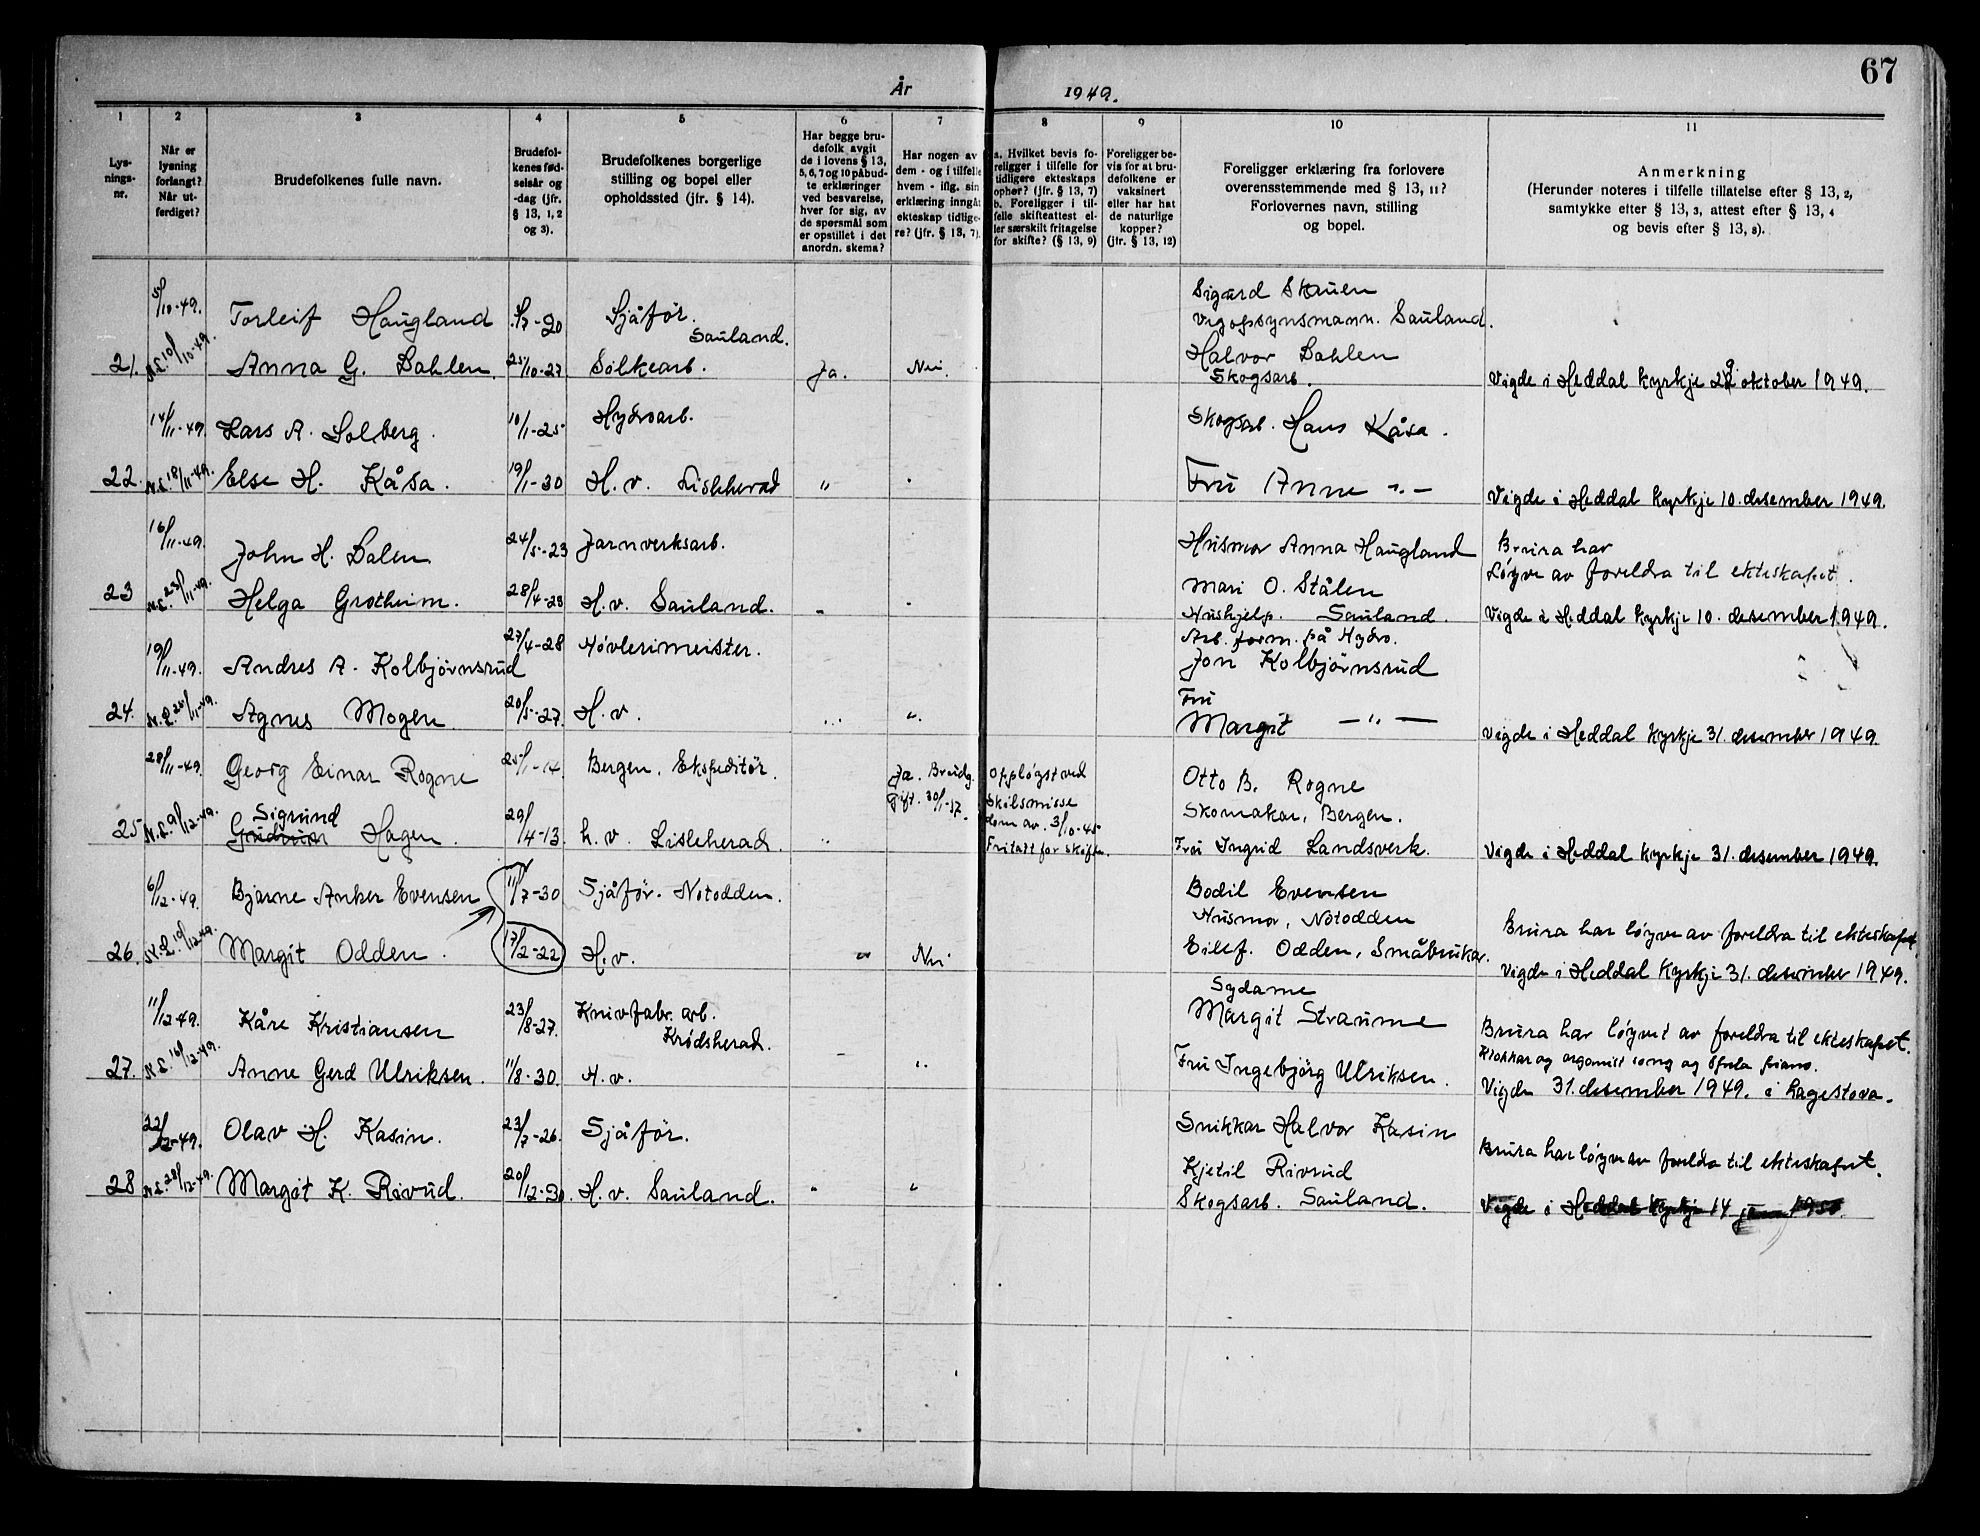 67
År 1949.
1 2 3 4 5 6 7 8 9 10 11
Lys-
nings-
nr.
Når er
lysning
forlangt?
Når ut-
ferdiget?
Brudefolkenes fulle navn.
Brudefol-
kenes fød-
selsår og
-dag (jfr.
§ 13, 1, 2
og 3).
Brudefolkenes borgerlige
stilling og bopel eller
opholdssted (jfr. § 14).
Har begge bru-
defolk avgit
de i lovens § 13,
5, 6, 7 og 10 påbud-
te erklæringer
ved besvarelse,
hver for sig, av
de spørsmål som
er opstillet i det
anordn. skema?
Har nogen av
dem - og i tilfelle
hvem - iflg. sin
erklæring inngåt
ekteskap tidlige-
re? (jfr. § 13, 7).
a. Hvilket bevis fo-
religger i tilfelle for
tidligere ekteskaps
ophør? (jfr. § 13, 7)
b. Foreligger i til-
felle skifteattest el-
ler særskilt fritagelse
for skifte? (§ 13, 9)
Foreligger be-
vis for at bru-
defolkene er
vaksinert
eller har hat
de naturlige
kopper?
(jfr. § 13, 12)
Foreligger erklæring fra forlovere
overensstemmende med § 13, 11?
Forlovernes navn, stilling
og bopel.
Anmerkning
(Herunder noteres i tilfelle tillatelse efter § 13, 2,
samtykke efter § 13, 3, attest efter § 13, 4
og bevis efter § 13, 8).
5/10-49. Torleif Haugland /7-20 Sjåfør. Sauland. Sigurd Skauen
Vegopsynsmann. Sauland.
21. N.L. 10/10-49. Anna G. Dahlen. 25/10-27 Sølkearb. Ja. Nei. Halvor Dahlen
Skogsarb. Vigde i Heddal kyrkje oktober 1949.
14/11-49. Lars A. Solberg. 10/1-25 Hydroarb. Skogsarb. Hans Kåsa.
22. N.L. 18/11-49. Else H. Kåsa. 19/1-30 H. v. Lisleherad " Fru Anne -"- Vigde i Heddal kyrkje 10. desember 1949.
16/11-49. John H. Dalen 24/5-23 Jarnverksarb. Husmor Anna Haugland Brura har
Løyve av foreldra til ekteskapet.
23 N.L. 23/11-49. Helga Grotheim. 28/4-28 H. v. Sauland. Mari O. Stålen
Hushjelp. Sauland. Vigde i Heddal kyrkje 10. desember 1949.
19/11-49. Andres A. Kolbjørnsrud 27/4-28 Høvlerimeister. Arb. form. på Hydro.
Jon Kolbjørnsrud
24. N.L. 25/11-49. Agnes Mogen 20/5-27. H. v. " " Fru
Margit -"- Vigde i Heddal kyrkje 31. desember 1949.
28/11-49. Georg Einar Rogne 25/1-14 Bergen. Ekspeditør. Ja. Brudg.
Gift. 30/1-37. Oppløyst ved
Skilsmisse
dom av. 3/10-45
Fritatt for skifte. Otto B. Rogne
Skomakar, Bergen.
25 N.L. 9/12-49. Sigrund
Gudrun Hagen. 29/4-13. h. v. Lisleherad. " Fru Ingrid Landsverk. Vigde i Heddal kyrkje 31. desember 1949.
6/12-49. Bjarne Anker Evensen 11/7-30 Sjåfør. Notodden. Bodil Evensen
Husmor, Notodden Brura har løyve av foreldra til ekteskapet.
26. N.L. 10/12-49. Margit Odden. 17/2-22 H. v. " Nei Eilef. Odden, Småbrukar. Vigde i Heddal kyrkje 31. desember 1949.
11/12-49. Kåre Kristiansen 23/8-27. Knivfabr. arb.
Krødsherad. Sydame
Margit Straume Brura har løyvet av foreldra til ekteskapet.
Klokkar og organist song og spela piano.
27. N.L. 16/12-49. Anne Gerd Ulriksen. 11/8-30. H. v. " Fru Ingebjørg Ulriksen. Vigde 31. desember 1949. i Lagestova.
22/12-49. Olav H. Kasin. 23/7-26. Sjåfør. Snikkar Halvor Kasin
Brura har løyve av foreldra til ekteskapet.
28 N.L. 28/12-49. Margit K. Rivrud. 20/12-30. H. v. Sauland. " " Kjetil Rivrud
Skogsarb. Sauland. Vigde i Heddal kyrkje 14 1950.